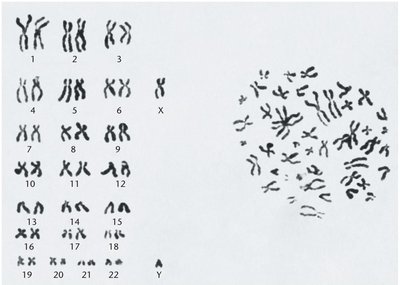 1 2 3
4 5 6 X
7 8 9
10 11 12
13 14 15
16 17 18
19 20 21 22 Y